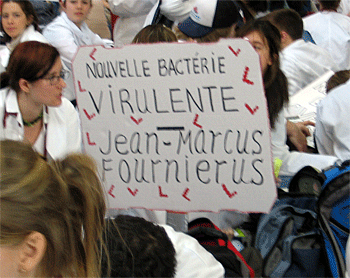 NOUVELLE BACTÉRIE
VIRULENTE
Jean-Marcus
Fournierus